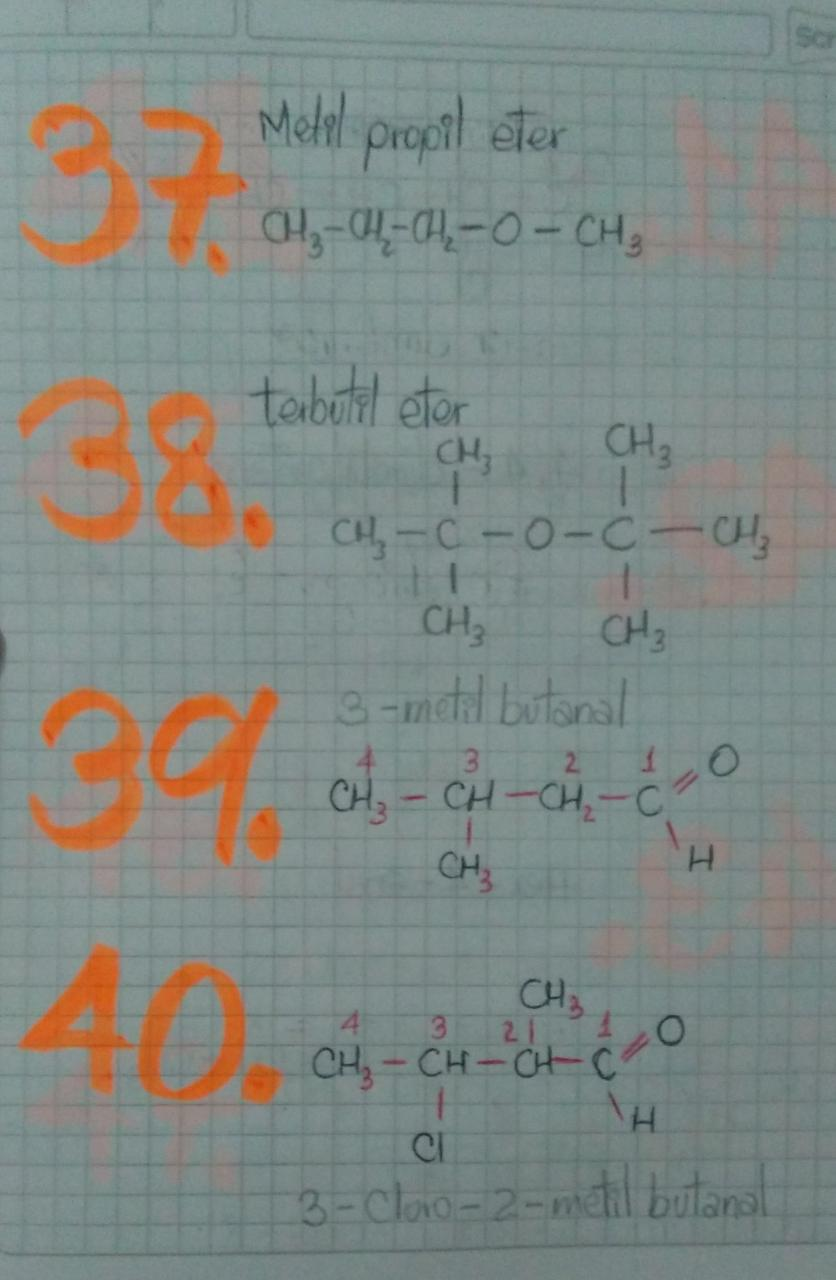 37. Metil propil eter
CH3-CH2-CH2-O-CH3
38. terbutil eter
CH3 CH3
CH3-C-O-C-CH3
CH3 CH3
39. 3-metil butanal
4 3 2 1 O
CH3-CH-CH2-C
CH3 H
40.
CH3
4 3 2 1 O
CH3-CH-CH-C
Cl H
3-Cloro-2-metil butanal